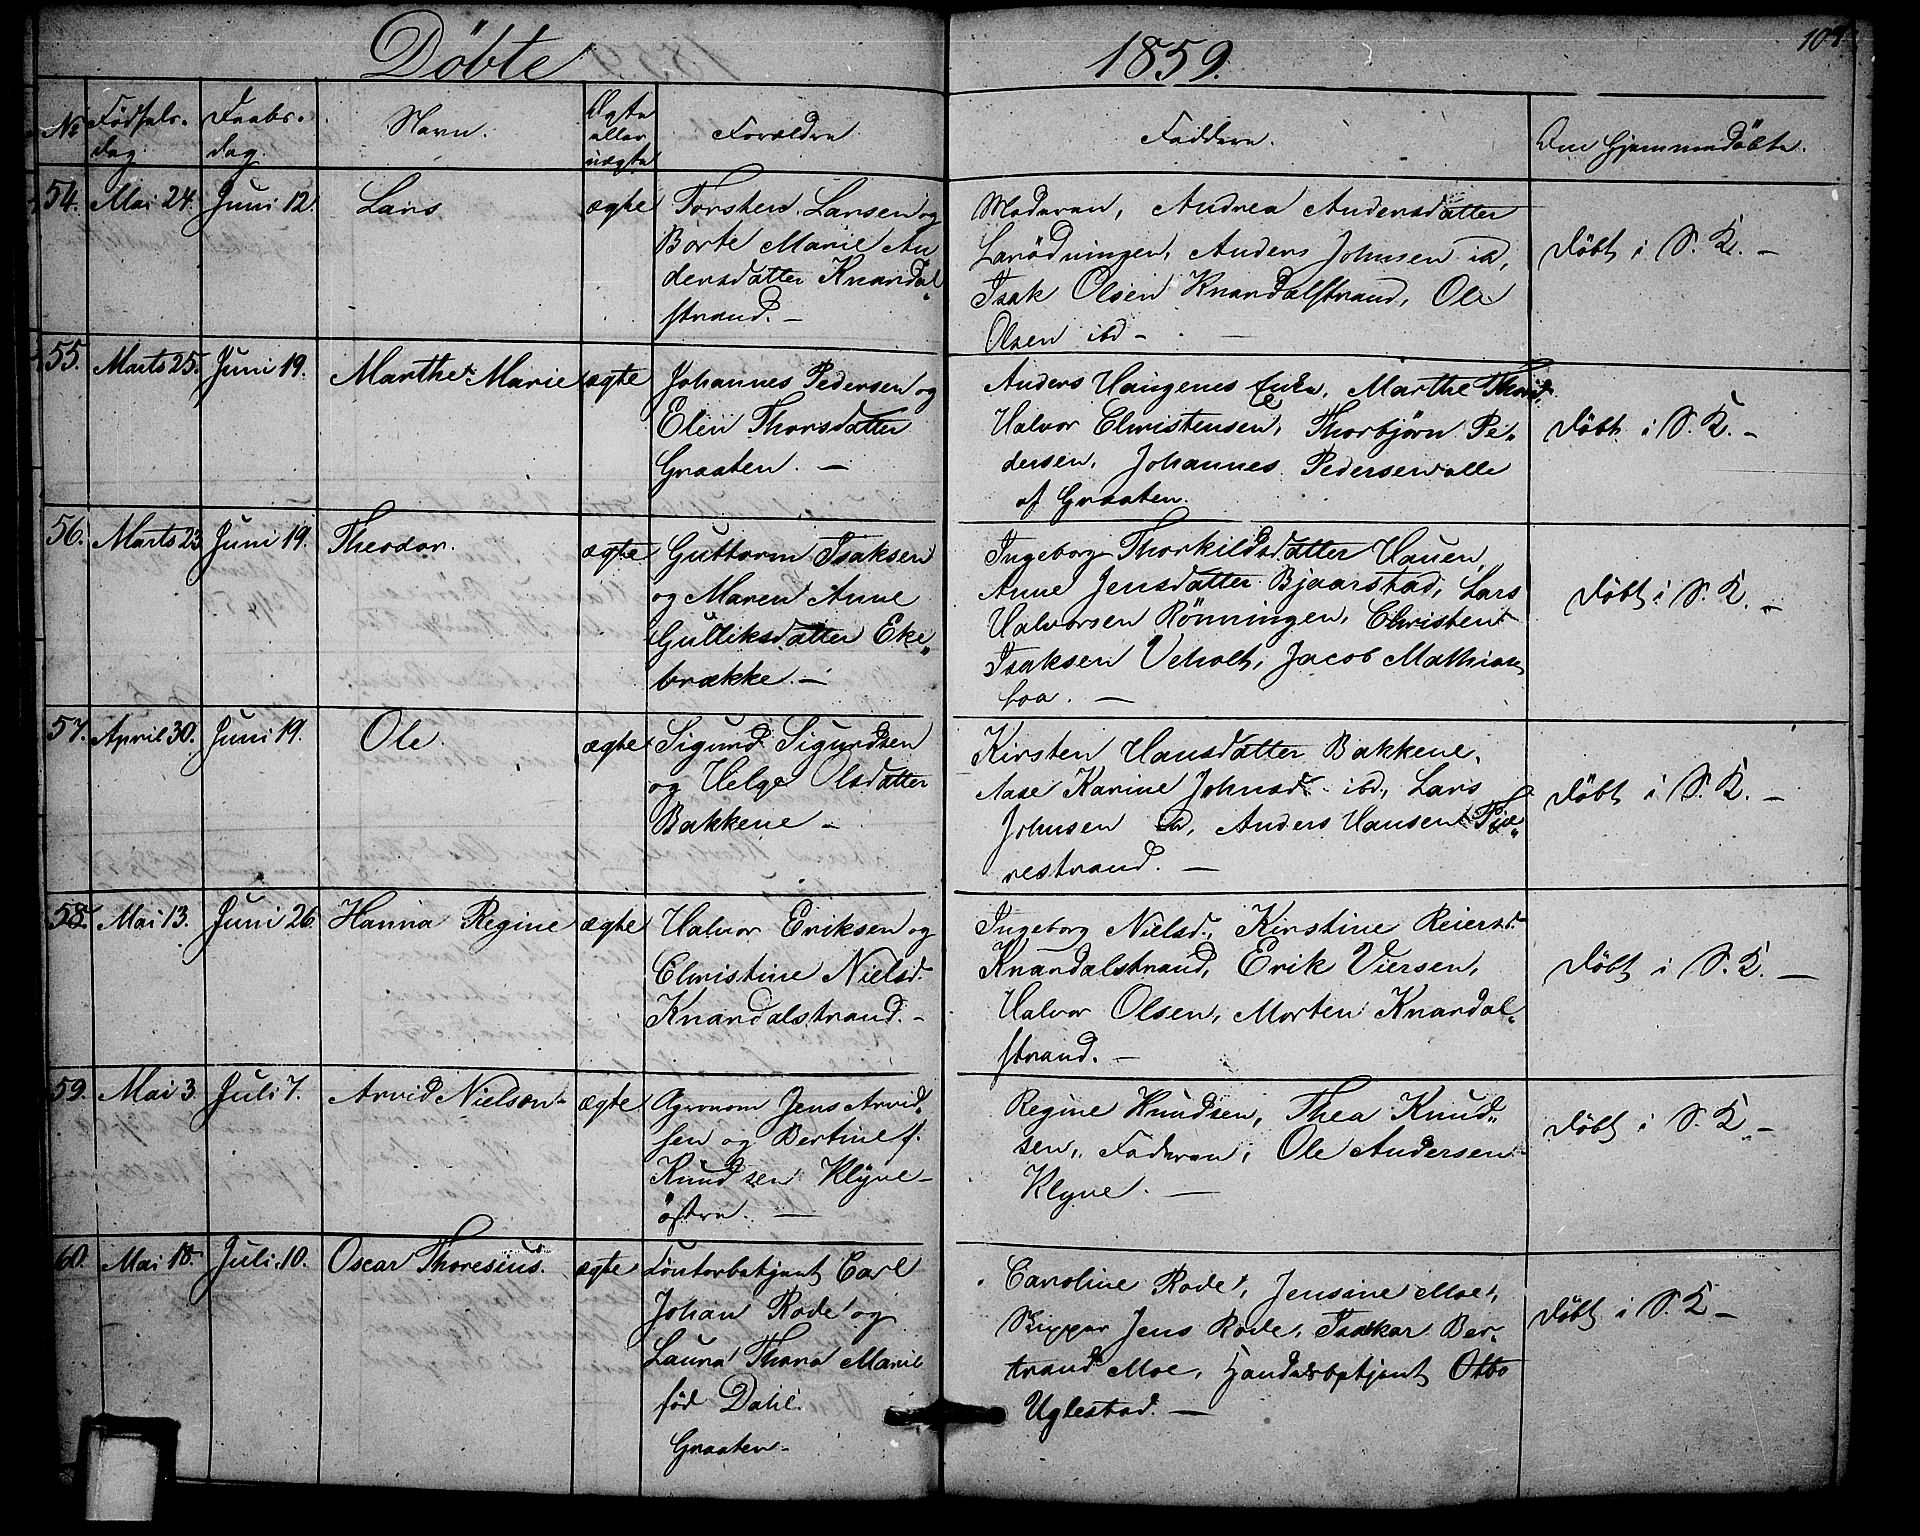 Døbte 1859.
No Fødsels- dag. Daabs- dag. Navn. Ægte eller uægte Forældre Faddere. Om Hjemmedøbte.
54. Mai 24. Juni 12. Lars ægte Torsten Larsen og
Børte Marie An
dersdatter Knardal„
strand. –
Moderen, Andrea Andersdatter
Larødningen, Anders Johnsen ib,
Isak Olsen Knardalstrand, Ole
Olsen ibd –
Døbt i S. K. –
55. Marts 25. Juni 19. Marthe Marie ægte Johannes Pedersen og
Elen Thorsdatter
Graaten. –
Anders Haugenes Enke, Marthe Thorsd.
Halvor Christensen, Thorbjørn Pe-
dersen, Johannes Pedersen alle
af Graaten.
Døbt i S. K. –
56. Marts 23 Juni 19. Theodor. ægte Guttorm Isaksen
og Maren Anne
Gulliksdatter Eke„
brække. –
Ingeborg Thorkildsdatter Hauen,
Anne Jensdatter Bjaarstad, Lars
Halvorsen Rønningen, Christen
Isaksen Veholt, Jacob Mathias
saa. –
Døbt i S. K. –
57. April 30. Juni 19. Ole. ægte Sigurd Sigurdsen
og Helge Olsdatter
Bakkene –
Kirsten Hansdatter Bakkene,
Aase Karine Johnsd. ibd, Lars
Johnsen ib, Anders Hansen Tjæ„
restrand. –
Døbt i S. K. –
58. Mai 13. Juni 26. Hanna Regine ægte Halvor Eriksen og
Christine Nielsd.
Knardalstrand. –
Ingeborg Nielsd., Kirstine Reiersd.
Knardalstrand, Erik Viersen,
Halvor Olsen, Morten Knardal„
strand. –
Døbt i S. K. –
59. Mai 3. Juli 7. Arvid Nielson ægte Agronom Jens Arvid„
sen og Bertine f.
Knudsen Klyve
østre. –
Regine Knudsen, Thea Knud„
sen, Faderen, Ole Andersen
Klyve. –
Døbt i S. K. –
60. Mai 18. Juli 10. Oscar Thoresius. ægte Contorbetjent Carl
Johan Rode og
Laura Thora Marie
fød Dahl.
Graaten –
Caroline Rode, Jensine Moe,
Skipper Jens Rode, Isakar Ber-
trand Moe, Handelsbetjent Otto
Uglestad. –
Døbt i S. K –